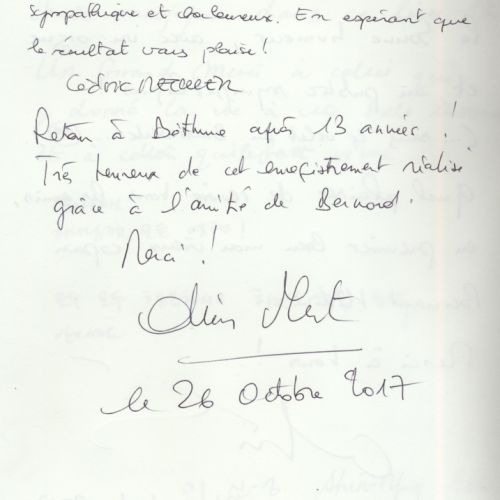 sympathique et chaleureux. En espérant que
le résultat vous plaise !
Cédric MECKLER
Retour à Béthune après 13 années !
Très heureux de cet enregistrement réalisé
grâce à l'amitié de Bernard.
Merci !
le 26 Octobre 2017